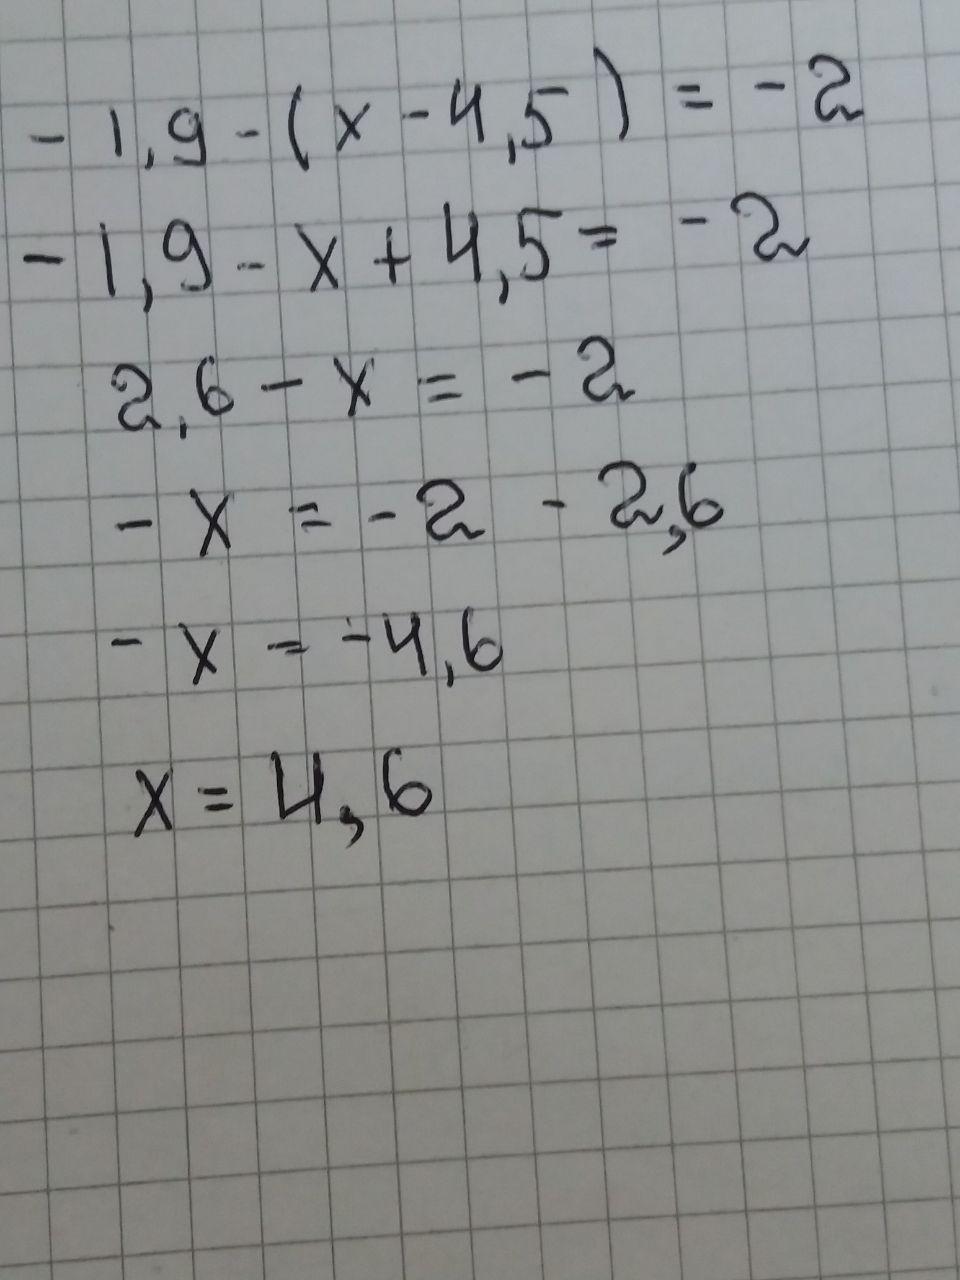 -1,9-(x-4,5)=-2
-1,9-x+4,5=-2
2,6-x=-2
-x=-2-2,6
-x=-4,6
x=4,6